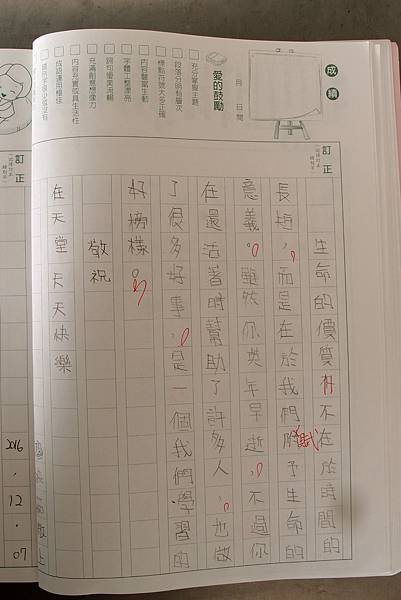 成績
月 日 間
愛的鼓勵
充分掌握主題
段落分明有層次
標點符號大多正確
內容豐富生動
字體工整漂亮
詞句優美流暢
充滿創意想像力
內容充實或具生活性
成語運用極佳
訂正
生命的價質不在於時間的
長短,而是在於我們賦予生命的
意義。雖然你英年早逝,不過你
在還活著時幫助了許多人,也做
了很多好事,是一個我們學習的
好榜樣。
敬祝
在天堂 天天快樂
敬上
訂正
2016.12.07